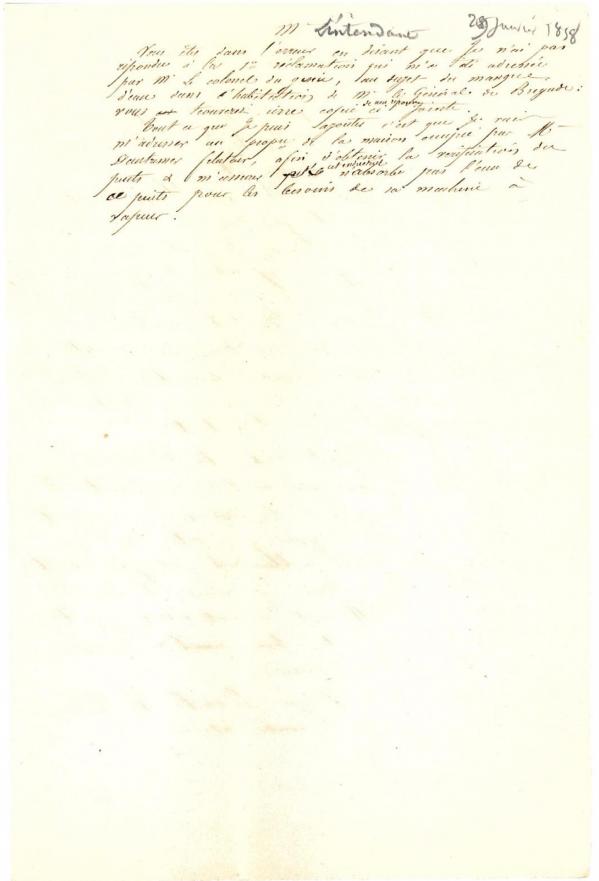 Mr L'intendant
28 Janvier 1858
Vous êtes dans l'erreur en disant que je n'ai pas
répondu à la 1re réclamation qui m'a été adressée
par Mr le colonel du génie, au sujet du manque
d'eau dans l'habitation de Mr le Général de Brigade :
vous trouverez copie de ma réponse ci jointe.
Tout ce que je puis ajouter c'est que je vais
m'adresser au propre de la maison occupée par Mr
afin d'obtenir la vérification du
puits & m'assurer si cet industriel n'absorbe pas l'eau de
ce puits pour les besoins de sa machine à
vapeur.